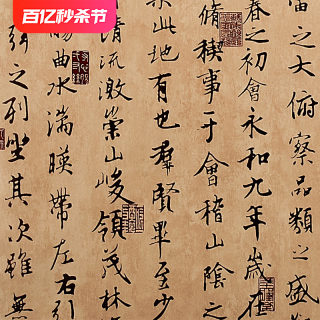 百亿秒杀节
宙之大俯察品類之盛
春之初會永和九年歲在
脩稧事于會稽山陰之
此地有也羣賢畢至少
清流激崇山峻領茂林
觴曲水湍暎帶左右引
之列坐其次雖無